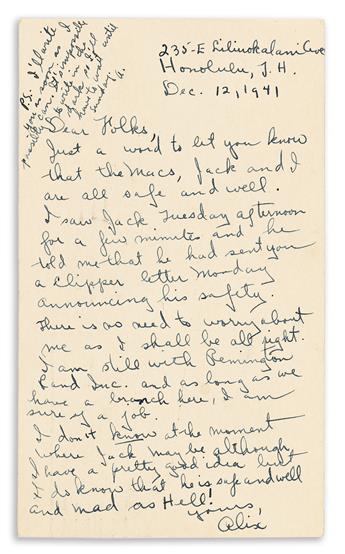 P.S. I'll write
you as soon as I
possibly can. It's impossible
to write in the
dark so I'll
have to wait until
Sunday. A.
235-E Liliuokalani Ave
Honolulu, T.H.
Dec. 12, 1941
Dear Folks,
Just a word to let you know
that the Macs, Jack and I
are all safe and well.
I saw Jack Tuesday afternoon
for a few minutes and he
told me that he had sent you
a clipper letter Monday
announcing his safety.
There is no need to worry about
me as I shall be all right.
I am still with Remington
Rand Inc. and as long as we
have a branch here, I am
sure of a job.
I don't know at the moment
where Jack may be although
I have a pretty good idea but
I do know that he is safe and well
and mad as Hell!
Yours,
Alix